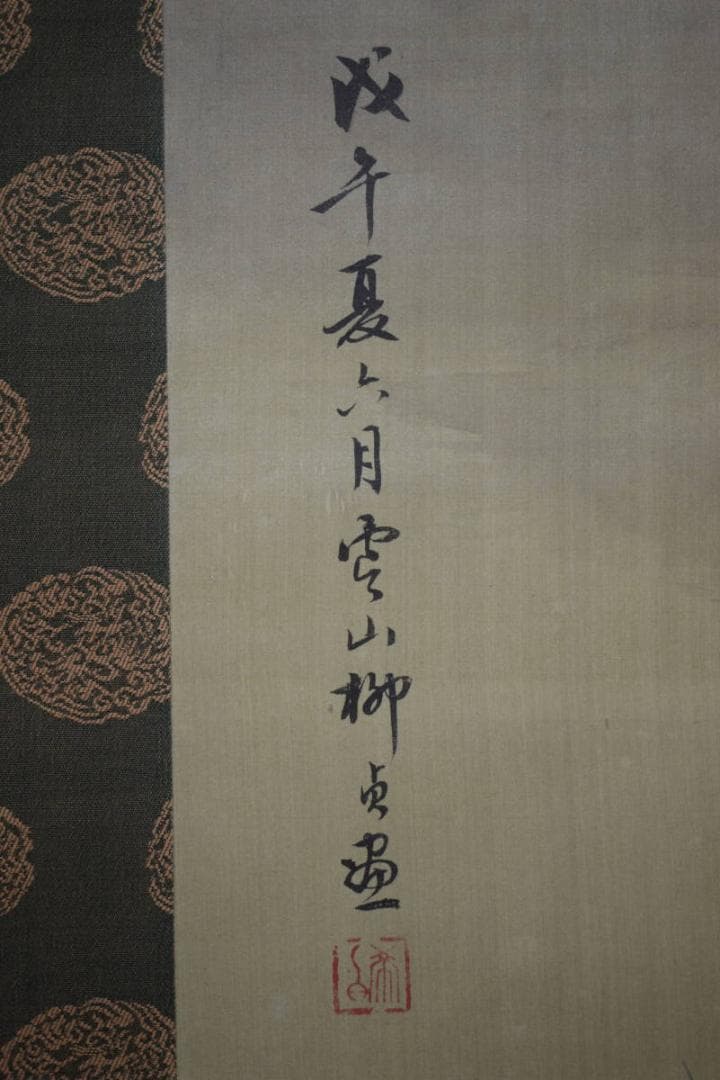 戊午夏六月雲山柳貞畫